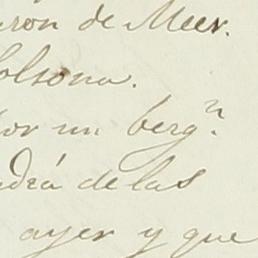 aron de Meer.
Solsona.
por un berg.n
de las
ayer y que